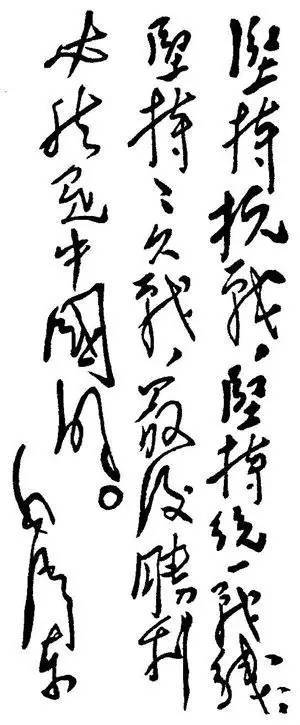 堅持抗戰、堅持統一戰綫、
堅持〻久戰、最後勝利
必然是中國的。
毛澤東